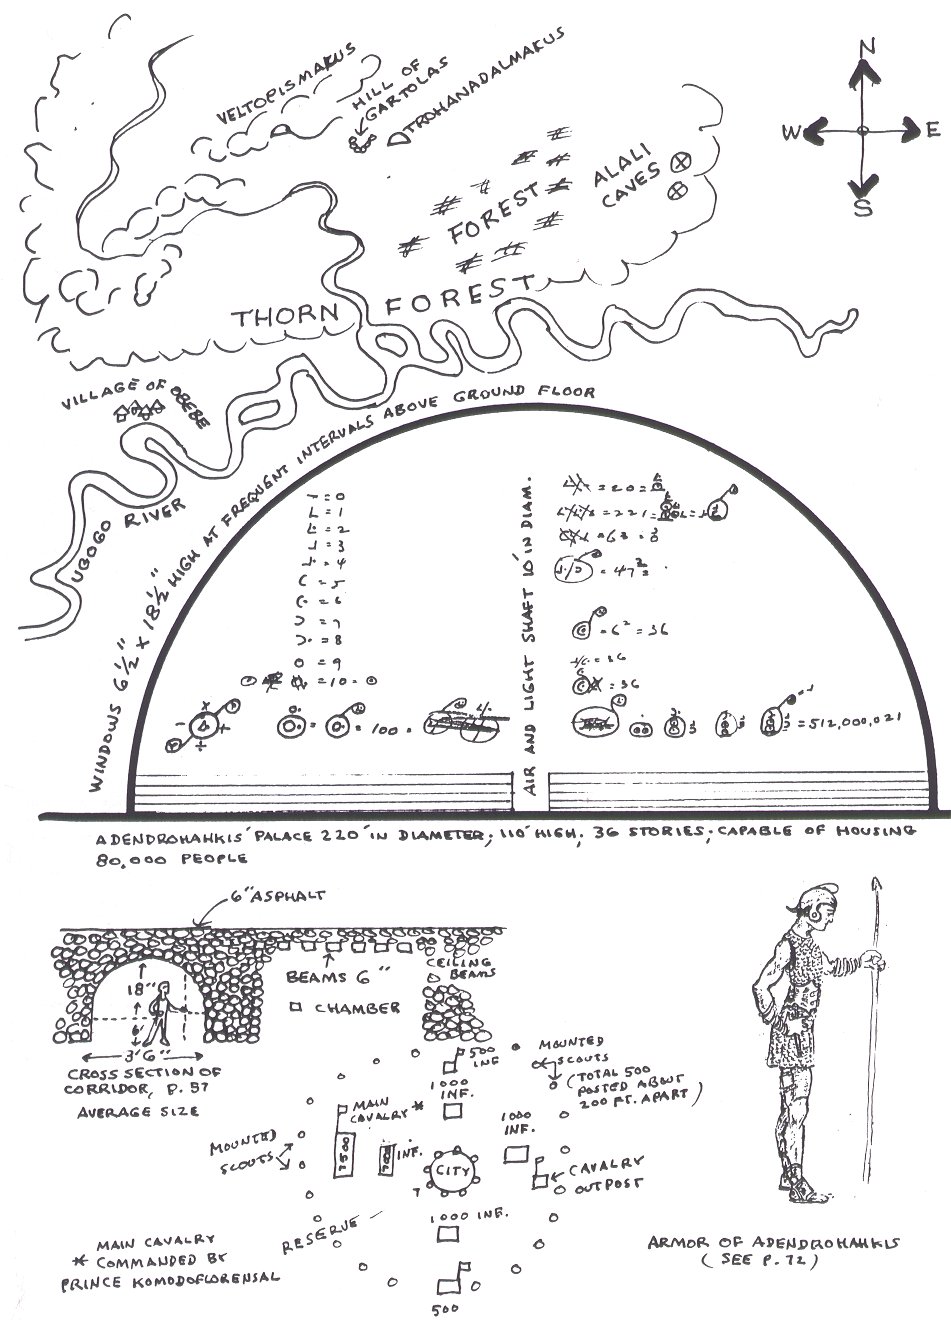 N
W E
S
VELTOPISMAKUS
HILL OF
GARTOLAS
TROHANADALMAKUS
FOREST
ALALI
CAVES
THORN FOREST
VILLAGE OF OBEBE
UBOGO RIVER
WINDOWS 6 1/2" X 18 1/2" HIGH AT FREQUENT INTERVALS ABOVE GROUND FLOOR
= 0
= 1
= 2
= 3
= 4
= 5
= 6
= 7
= 8
= 9
= 10 =
= 100 =
AIR AND LIGHT SHAFT 10' IN DIAM.
= 20 =
= 221 =
= 63 =
= 47
= 6² = 36
= 36
= 36
= 512,000,021
ADENDROHAHKIS' PALACE 220' IN DIAMETER; 110' HIGH; 36 STORIES; CAPABLE OF HOUSING
80,000 PEOPLE
6" ASPHALT
18"
6"
3'6"
CROSS SECTION OF
CORRIDOR, P. 57
AVERAGE SIZE
BEAMS 6"
CHAMBER
CEILING
BEAMS
500
INF
1000
INF.
MOUNTED
SCOUTS
(TOTAL 500
POSTED ABOUT
200 FT. APART)
MAIN
CAVALRY *
1000
INF.
MOUNTED
SCOUTS
7500
7000
INF.
CITY
CAVALRY
OUTPOST
7
1000 INF.
RESERVE
500
MAIN CAVALRY
* COMMANDED BY
PRINCE KOMODOFLORENSAL
ARMOR OF ADENDROHAHKIS
(SEE P. 72)